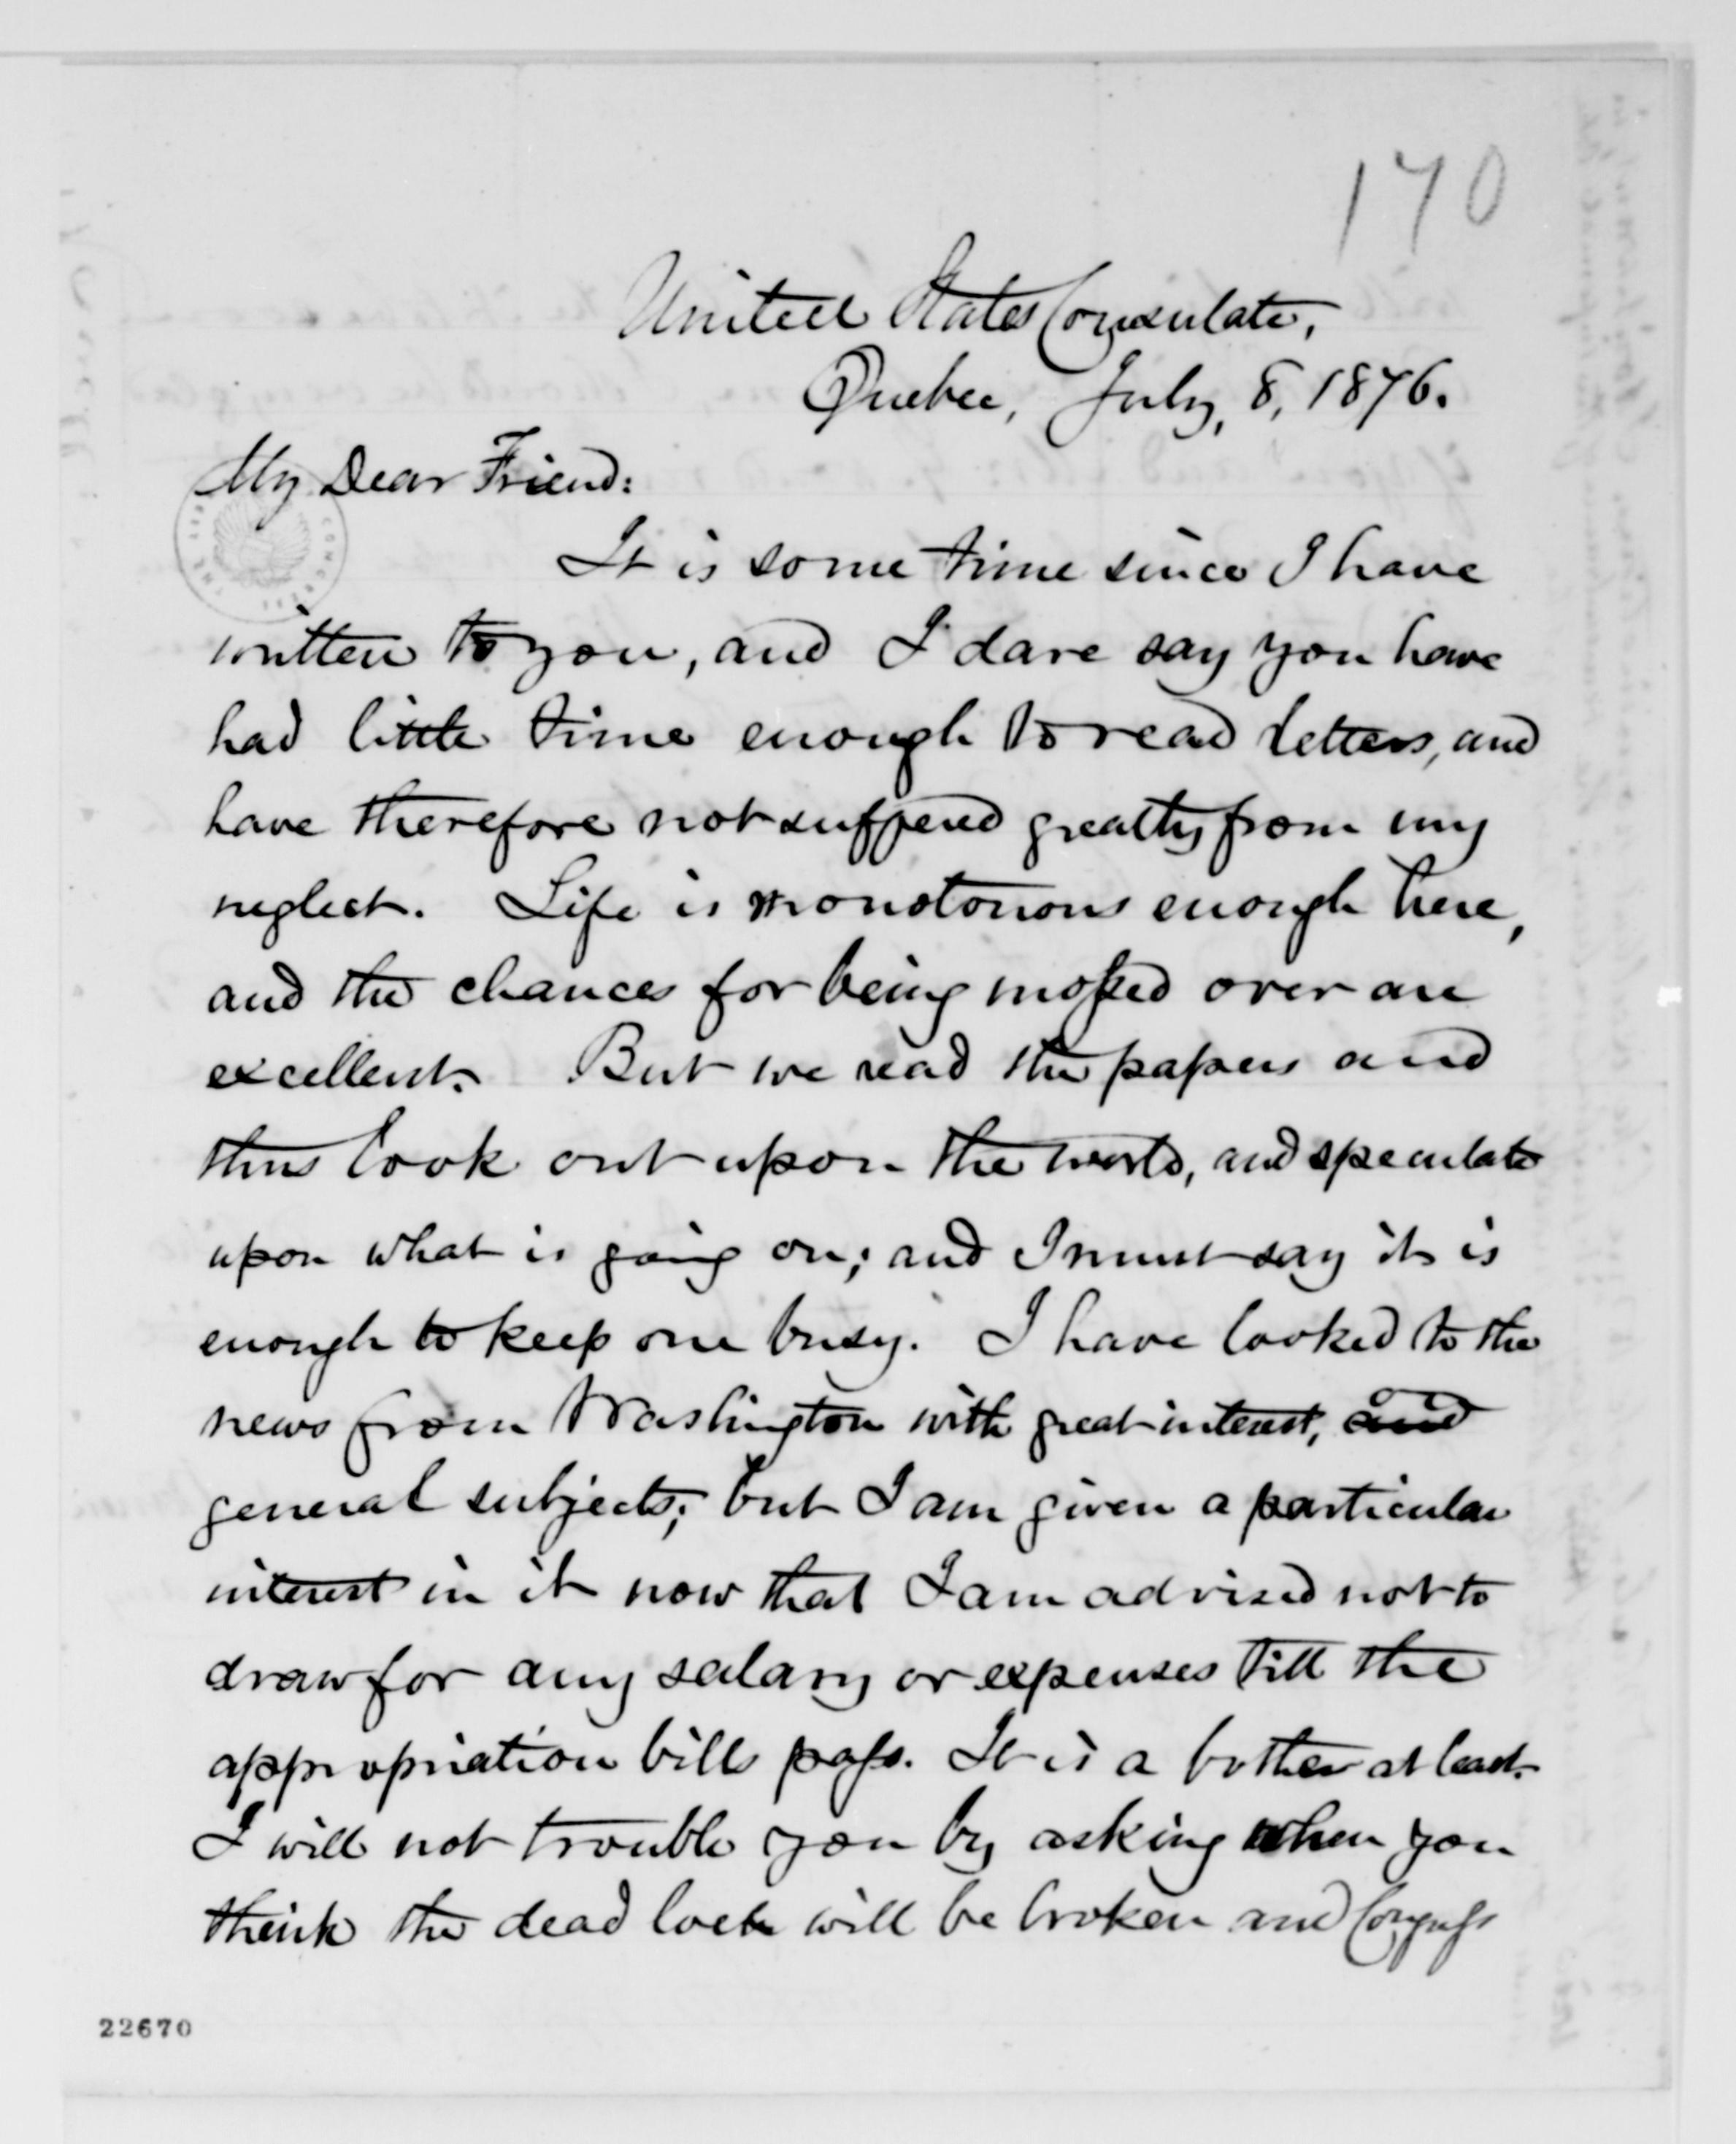 170
United States Consulate,
Quebec, July, 8, 1876.
My Dear Friend:
It is some time since I have
written to you, and I dare say you have
had little time enough to read letters, and
have therefore not suffered greatly from my
neglect. Life is monotonous enough here,
and the chances for being moped over are
excellent. But we read the papers and
thus look out upon the world, and speculate
upon what is going on; and I must say it is
enough to keep one busy. I have looked to the
news from Washington with great interest,
general subjects; but I am given a particular
interest in it now that I am advised not to
draw for any salary or expenses till the
appropriation bills pass. It is a bother at least.
I will not trouble you by asking when you
think the dead lock will be broken and Congress
22670